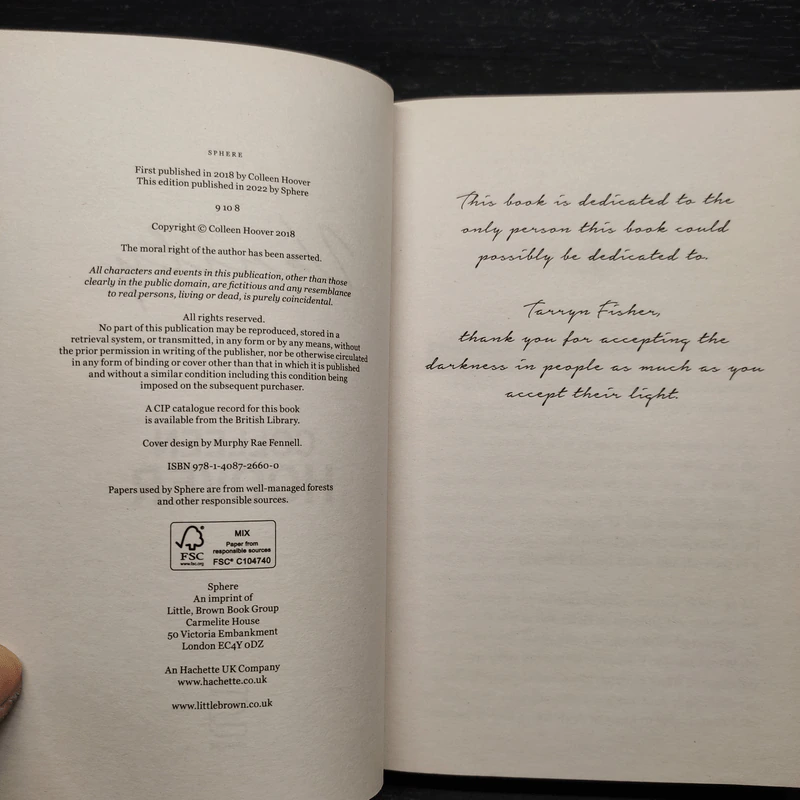 SPHERE
First published in 2018 by Colleen Hoover
This edition published in 2022 by Sphere
9 10 8
Copyright © Colleen Hoover 2018
The moral right of the author has been asserted.
All characters and events in this publication, other than those
clearly in the public domain, are fictitious and any resemblance
to real persons, living or dead, is purely coincidental.
All rights reserved.
No part of this publication may be reproduced, stored in a
retrieval system, or transmitted, in any form or by any means, without
the prior permission in writing of the publisher, nor be otherwise circulated
in any form of binding or cover other than that in which it is published
and without a similar condition including this condition being
imposed on the subsequent purchaser.
A CIP catalogue record for this book
is available from the British Library.
Cover design by Murphy Rae Fennell.
ISBN 978-1-4087-2660-0
Papers used by Sphere are from well-managed forests
and other responsible sources.
FSC
www.fsc.org
MIX
Paper from
responsible sources
FSC® C104740
Sphere
An imprint of
Little, Brown Book Group
Carmelite House
50 Victoria Embankment
London EC4Y 0DZ
An Hachette UK Company
www.hachette.co.uk
www.littlebrown.co.uk
This book is dedicated to the
only person this book could
possibly be dedicated to.
Tarryn Fisher,
thank you for accepting the
darkness in people as much as you
accept their light.